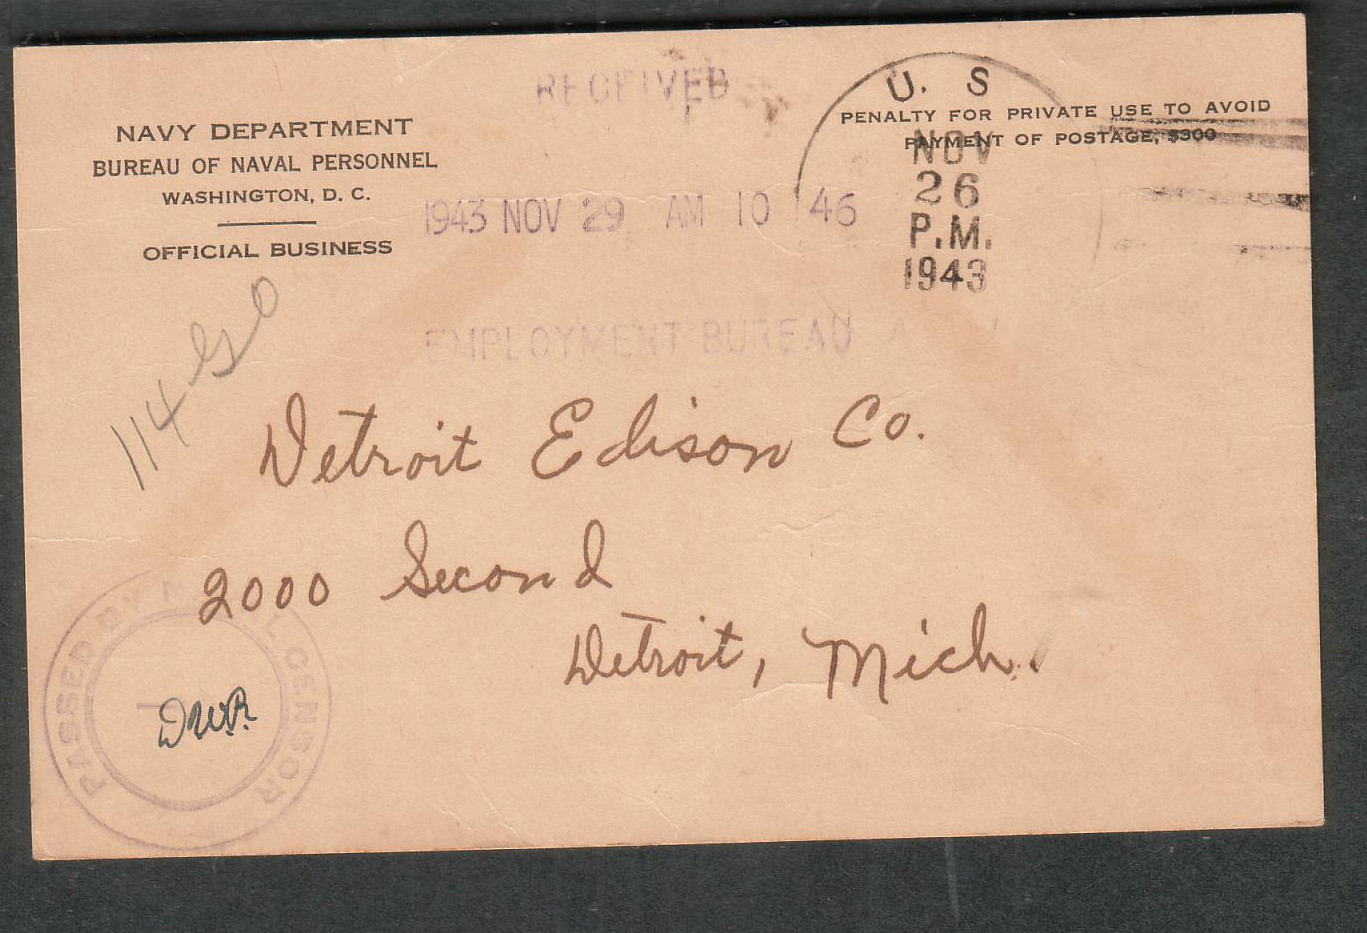 RECEIVED
U. S
NAVY DEPARTMENT
BUREAU OF NAVAL PERSONNEL
WASHINGTON, D. C.
OFFICIAL BUSINESS
PENALTY FOR PRIVATE USE TO AVOID
PAYMENT OF POSTAGE, $300
NOV
26
P.M.
1943
1943 NOV 29 AM 10 46
EMPLOYMENT BUREAU
114
Detroit Edison Co.
2000 Second
Detroit, Mich.
PASSED BY NAVAL CENSOR